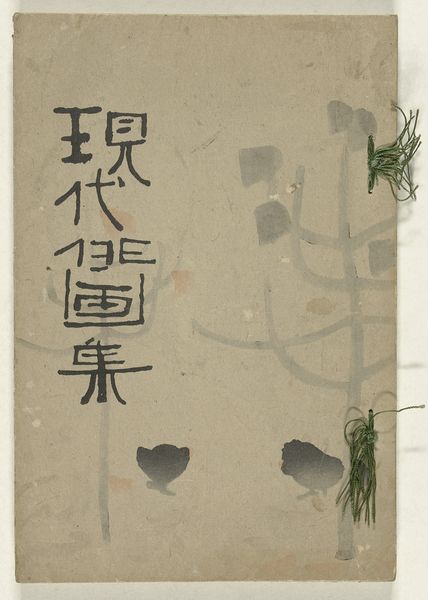 現代俳画集